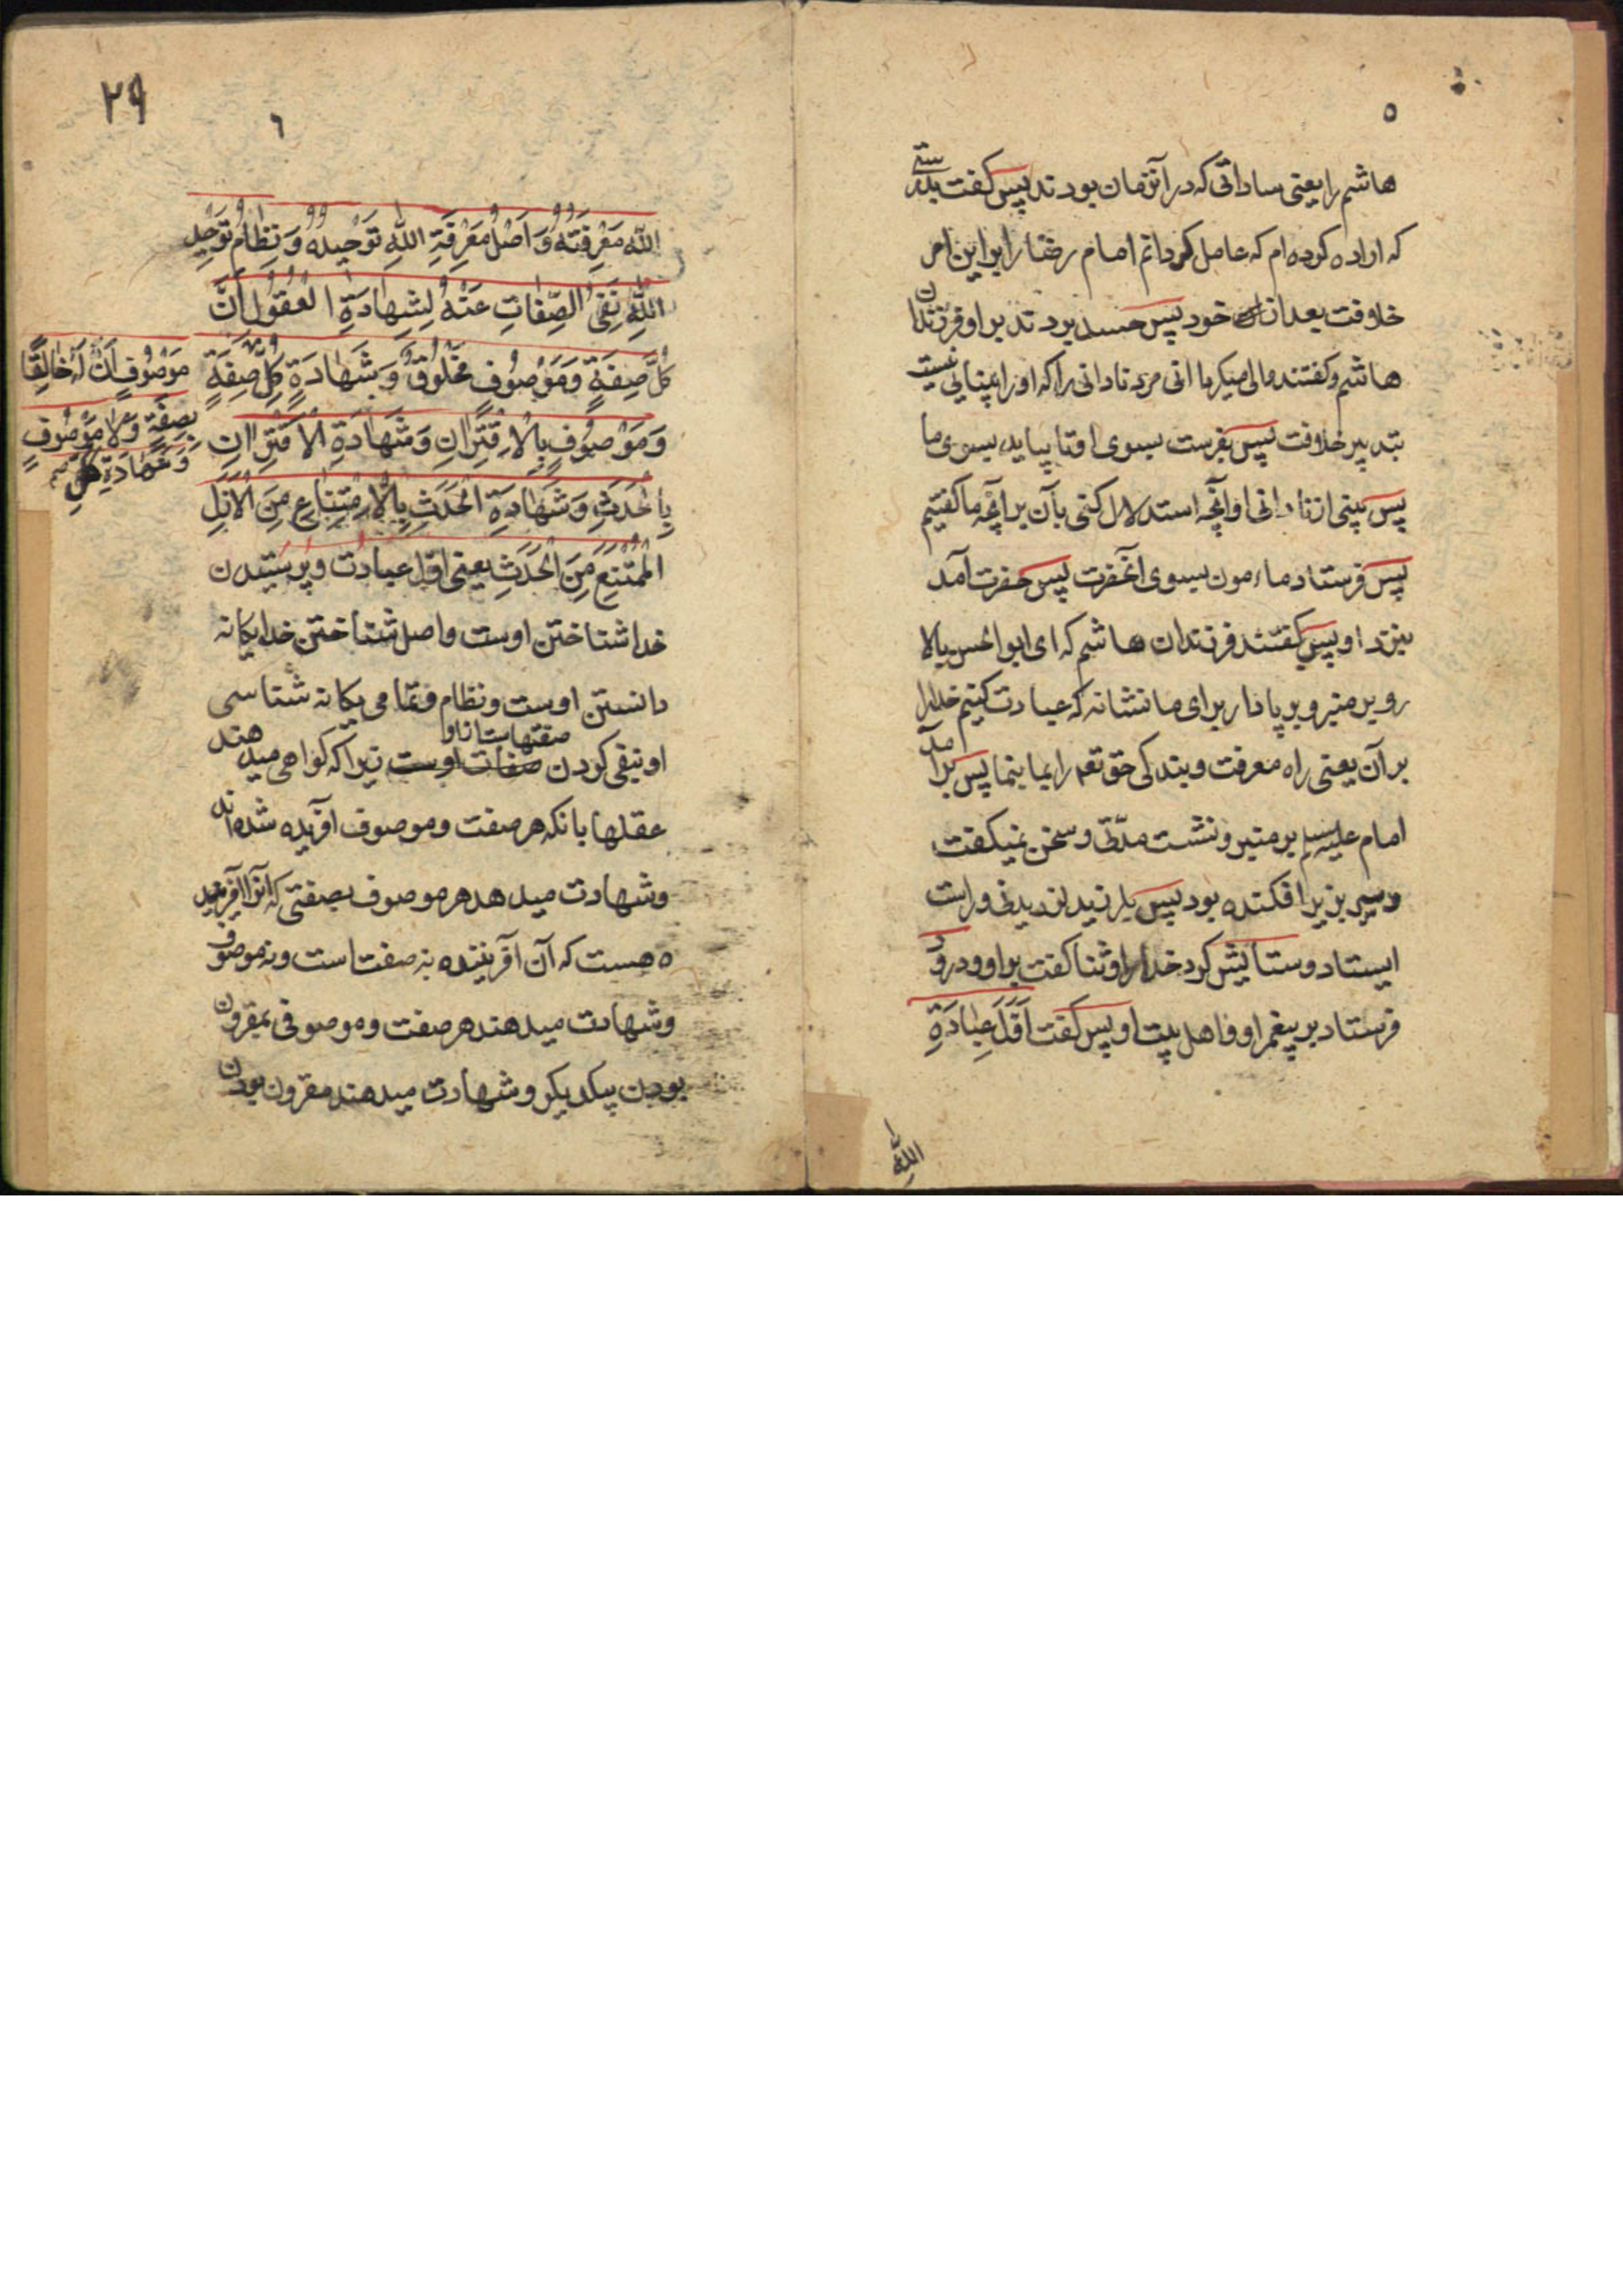 ٥
هاشم را یعنی ساداتی که در آنزمان بودند پس کفت بدرستی
که اراده کرده ام که عامل کردانم امام رضا را بر این امر
خلافت بعد از خود پس حسد بردند بر او فرزندان
هاشم و کفتند والی میکردانی مرد نادانی را که او را بینایی نیست
بتدبیر خلافت پس بفرست بسوی او تا بیاید بسوی ما
پس ببینی از نادانی او آنچه استدلال کنی بآن بر آنچه ما کفتیم
پس فرستاد ماءمون بسوی آنحضرت پس حضرت آمد
بنزد او پس کفتند فرزندان هاشم که ای ابو الحسن بالا
رو بر منبر و بر پا دار برای ما نشانه که عبادت کنیم خدا را
بر آن یعنی راه معرفت و بندکی حق تعه را بما بنما پس بر آمد
امام علیه سلم بر منبر و نشست مدتی و سخن نمیکفت
و سر بزیر افکنده بود پس بلرزید لرزیدنی و راست
ایستاد و ستایش کرد خدا را و ثنا کفت بر او و درود
فرستاد بر پیغمبر او و اهل بیت او پس کفت اَوَّلُ عِبَادَةِ
اللّهِ
٢٩
٦
اللّهِ مَعْرِفَتُهُ وَ اَصْلُ مَعْرِفَةِ اللّهِ تَوْحِیدُهُ وَ نِظَامُ تَوْحِیدِ
اللّهِ نَفْیُ الصِّفَاتِ عَنْهُ لِشَهَادَةِ الْعُقُولِ اَنَّ
کُلَّ صِفَةٍ وَ مَوْصُوفٍ مَخْلُوقٌ وَ بِشَهَادَةِ کُلِّ صِفَةٍ
مَوْصُوفٍ اَنَّ لَهُ خَالِقًا
بِصِفَةٍ وَ لَا مَوْصُوفٍ
وَ شَهَادَةِ کُلِّ
وَ مَوْصُوفٍ بِالْاِقْتِرَانِ وَ شَهَادَةِ الْاِقْتِرَانِ
بِالْحَدَثِ وَ شَهَادَةِ الْحَدَثِ بِالْاِمْتِنَاعِ مِنَ الْاَزَلِ
الْمُمْتَنِعِ مِنَ الْحَدَثِ یعنی اول عبادت و پرستیدن
خدا شناختن اوست و اصل شناختن خدا یکانه
دانستن اوست و نظام و تمامی یکانه شناسی
صفتهاست از او
او بنفی کردن صفات اوست زیرا که کواهی میدهند
عقلها بانکه هر صفت و موصوف آفریده شده اند
و شهادت میدهد هر موصوف بصفتی که او را آفریننده
ه هست که آن آفریننده نه صفت است و نه موصوف
و شهادت میدهند هر صفت و موصوفی بمقرون
بودن بیکدیکر و شهادت میدهند مقرون بودن